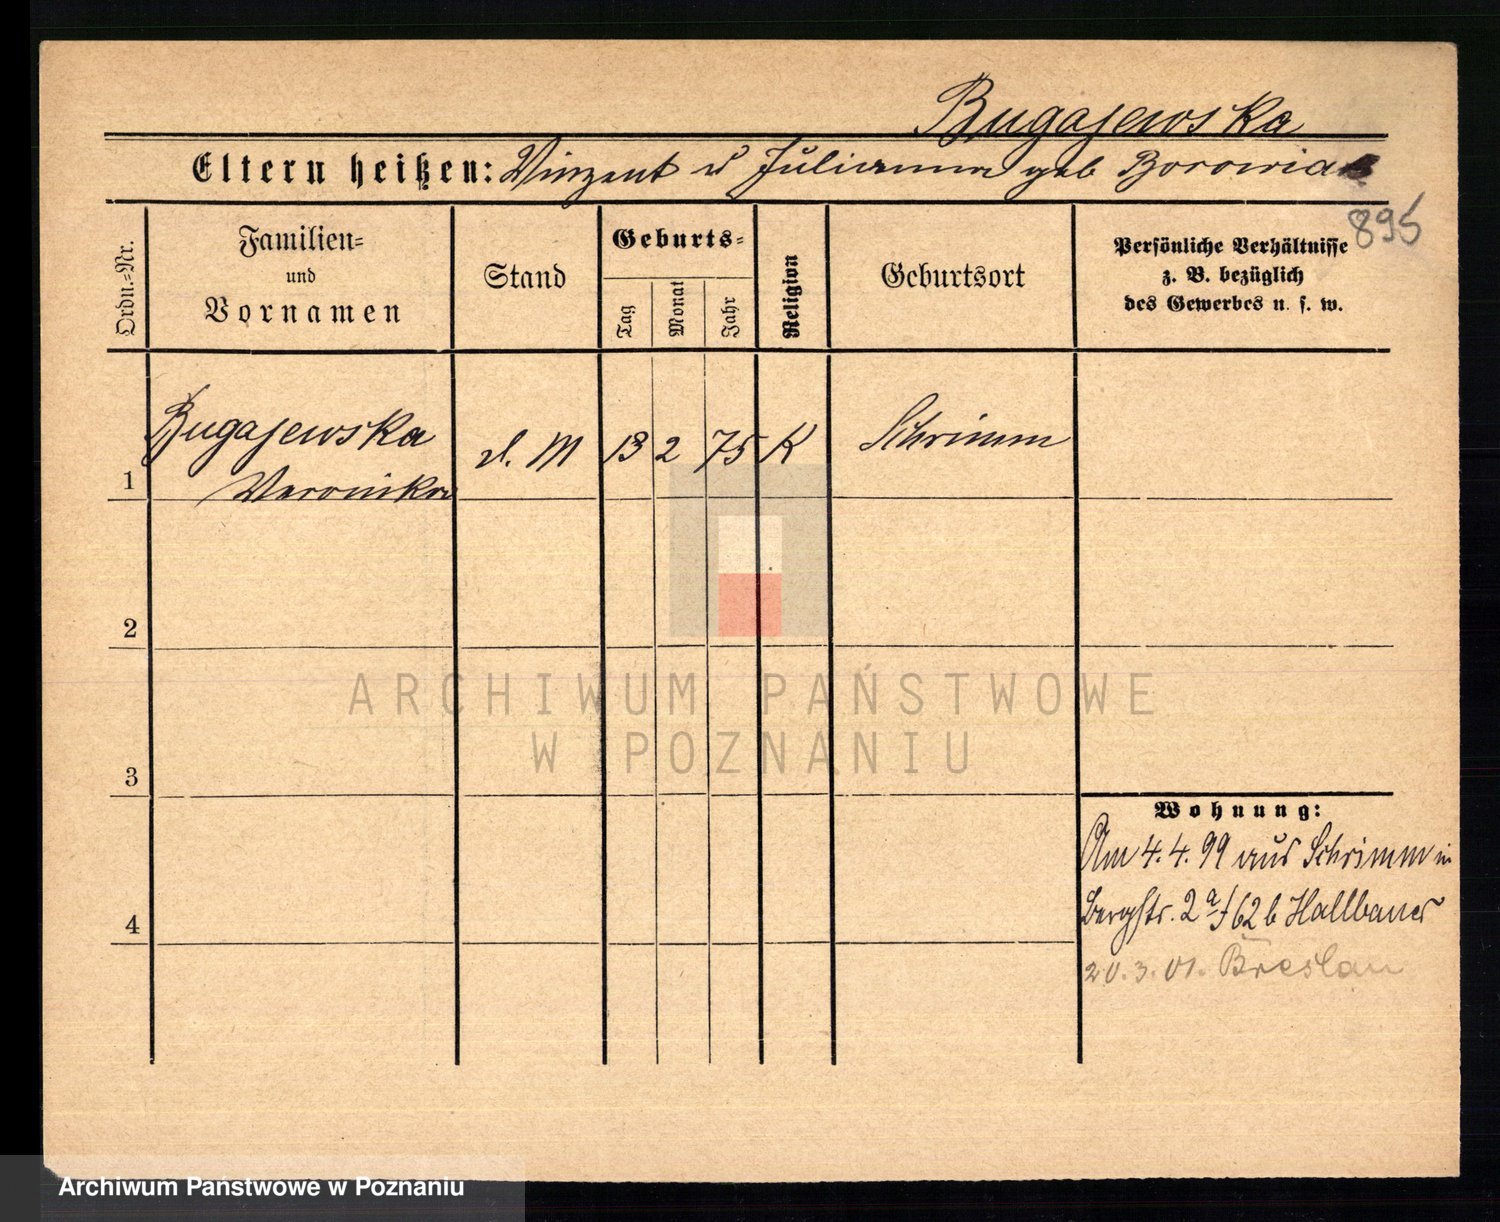 Bugajewska
Eltern heißen: Vinzent u Julianna geb Borowiak
895
Ordn.-Nr.
Familien-
und
Vornamen
Stand
Geburts-
Tag
Monat
Jahr
Religion
Geburtsort
Persönliche Verhältnisse
z. B. bezüglich
des Gewerbes u. s. w.
1
Bugajewska
Veronika
d. M
13 2 75 K
Schrimm
2
3
4
Wohnung:
Am 4. 4. 99 aus Schrimm in
Bergstr. 2a f 62 b Hallbauer
20. 3. 01. Breslau
ARCHIWUM PAŃSTWOWE
W POZNANIU
Archiwum Państwowe w Poznaniu